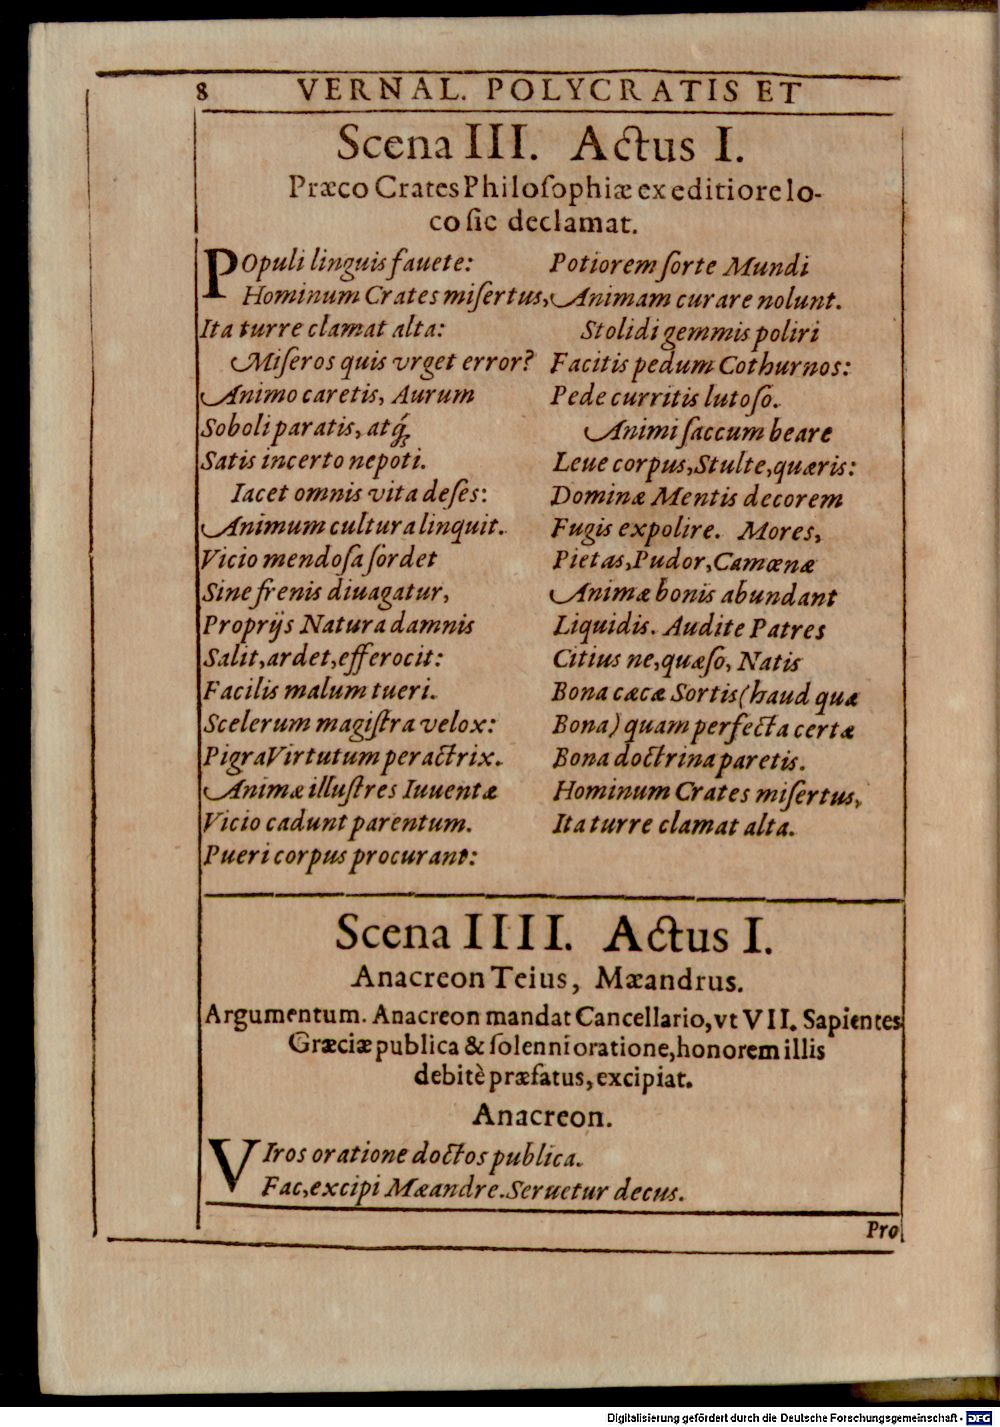 8 VERNAL. POLYCRATIS ET
Scena III. Actus I.
Præco Crates Philoſophiæ ex editiore lo-
co ſic declamat.
POpuli linguis fauete:
Hominum Crates miſertus,
Ita turre clamat alta:
Miſeros quis vrget error?
Animo caretis, Aurum
Soboli paratis, atq́;
Satis incerto nepoti.
Iacet omnis vita deſes:
Animum cultura linquit.
Vicio mendoſa ſordet
Sine frenis diuagatur,
Proprijs Natura damnis
Salit, ardet, efferocit:
Facilis malum tueri.
Scelerum magiſtra velox:
Pigra Virtutum peractrix.
Animæ illuſtres Iuuentæ
Vicio cadunt parentum.
Pueri corpus procurant:
Potiorem ſorte Mundi
Animam curare nolunt.
Stolidi gemmis poliri
Facitis pedum Cothurnos:
Pede curritis lutoſo.
Animi ſaccum beare
Leue corpus, Stulte, quæris:
Dominæ Mentis decorem
Fugis expolire. Mores,
Pietas, Pudor, Camœnæ
Animæ bonis abundant
Liquidis. Audite Patres
Citius ne, quæſo, Natis
Bona cæcæ Sortis (haud quæ
Bona) quam perfecta certæ
Bona doctrina paretis.
Hominum Crates miſertus,
Ita turre clamat alta.
Scena IIII. Actus I.
Anacreon Teius, Mæandrus.
Argumentum. Anacreon mandat Cancellario, vt VII. Sapientes
Græciæ publica & ſolenni oratione, honorem illis
debitè præfatus, excipiat.
Anacreon.
VIros oratione doctos publica.
Fac, excipi Mæandre. Seruetur decus.
Pro
Digitalisierung gefördert durch die Deutsche Forschungsgemeinschaft - DFG